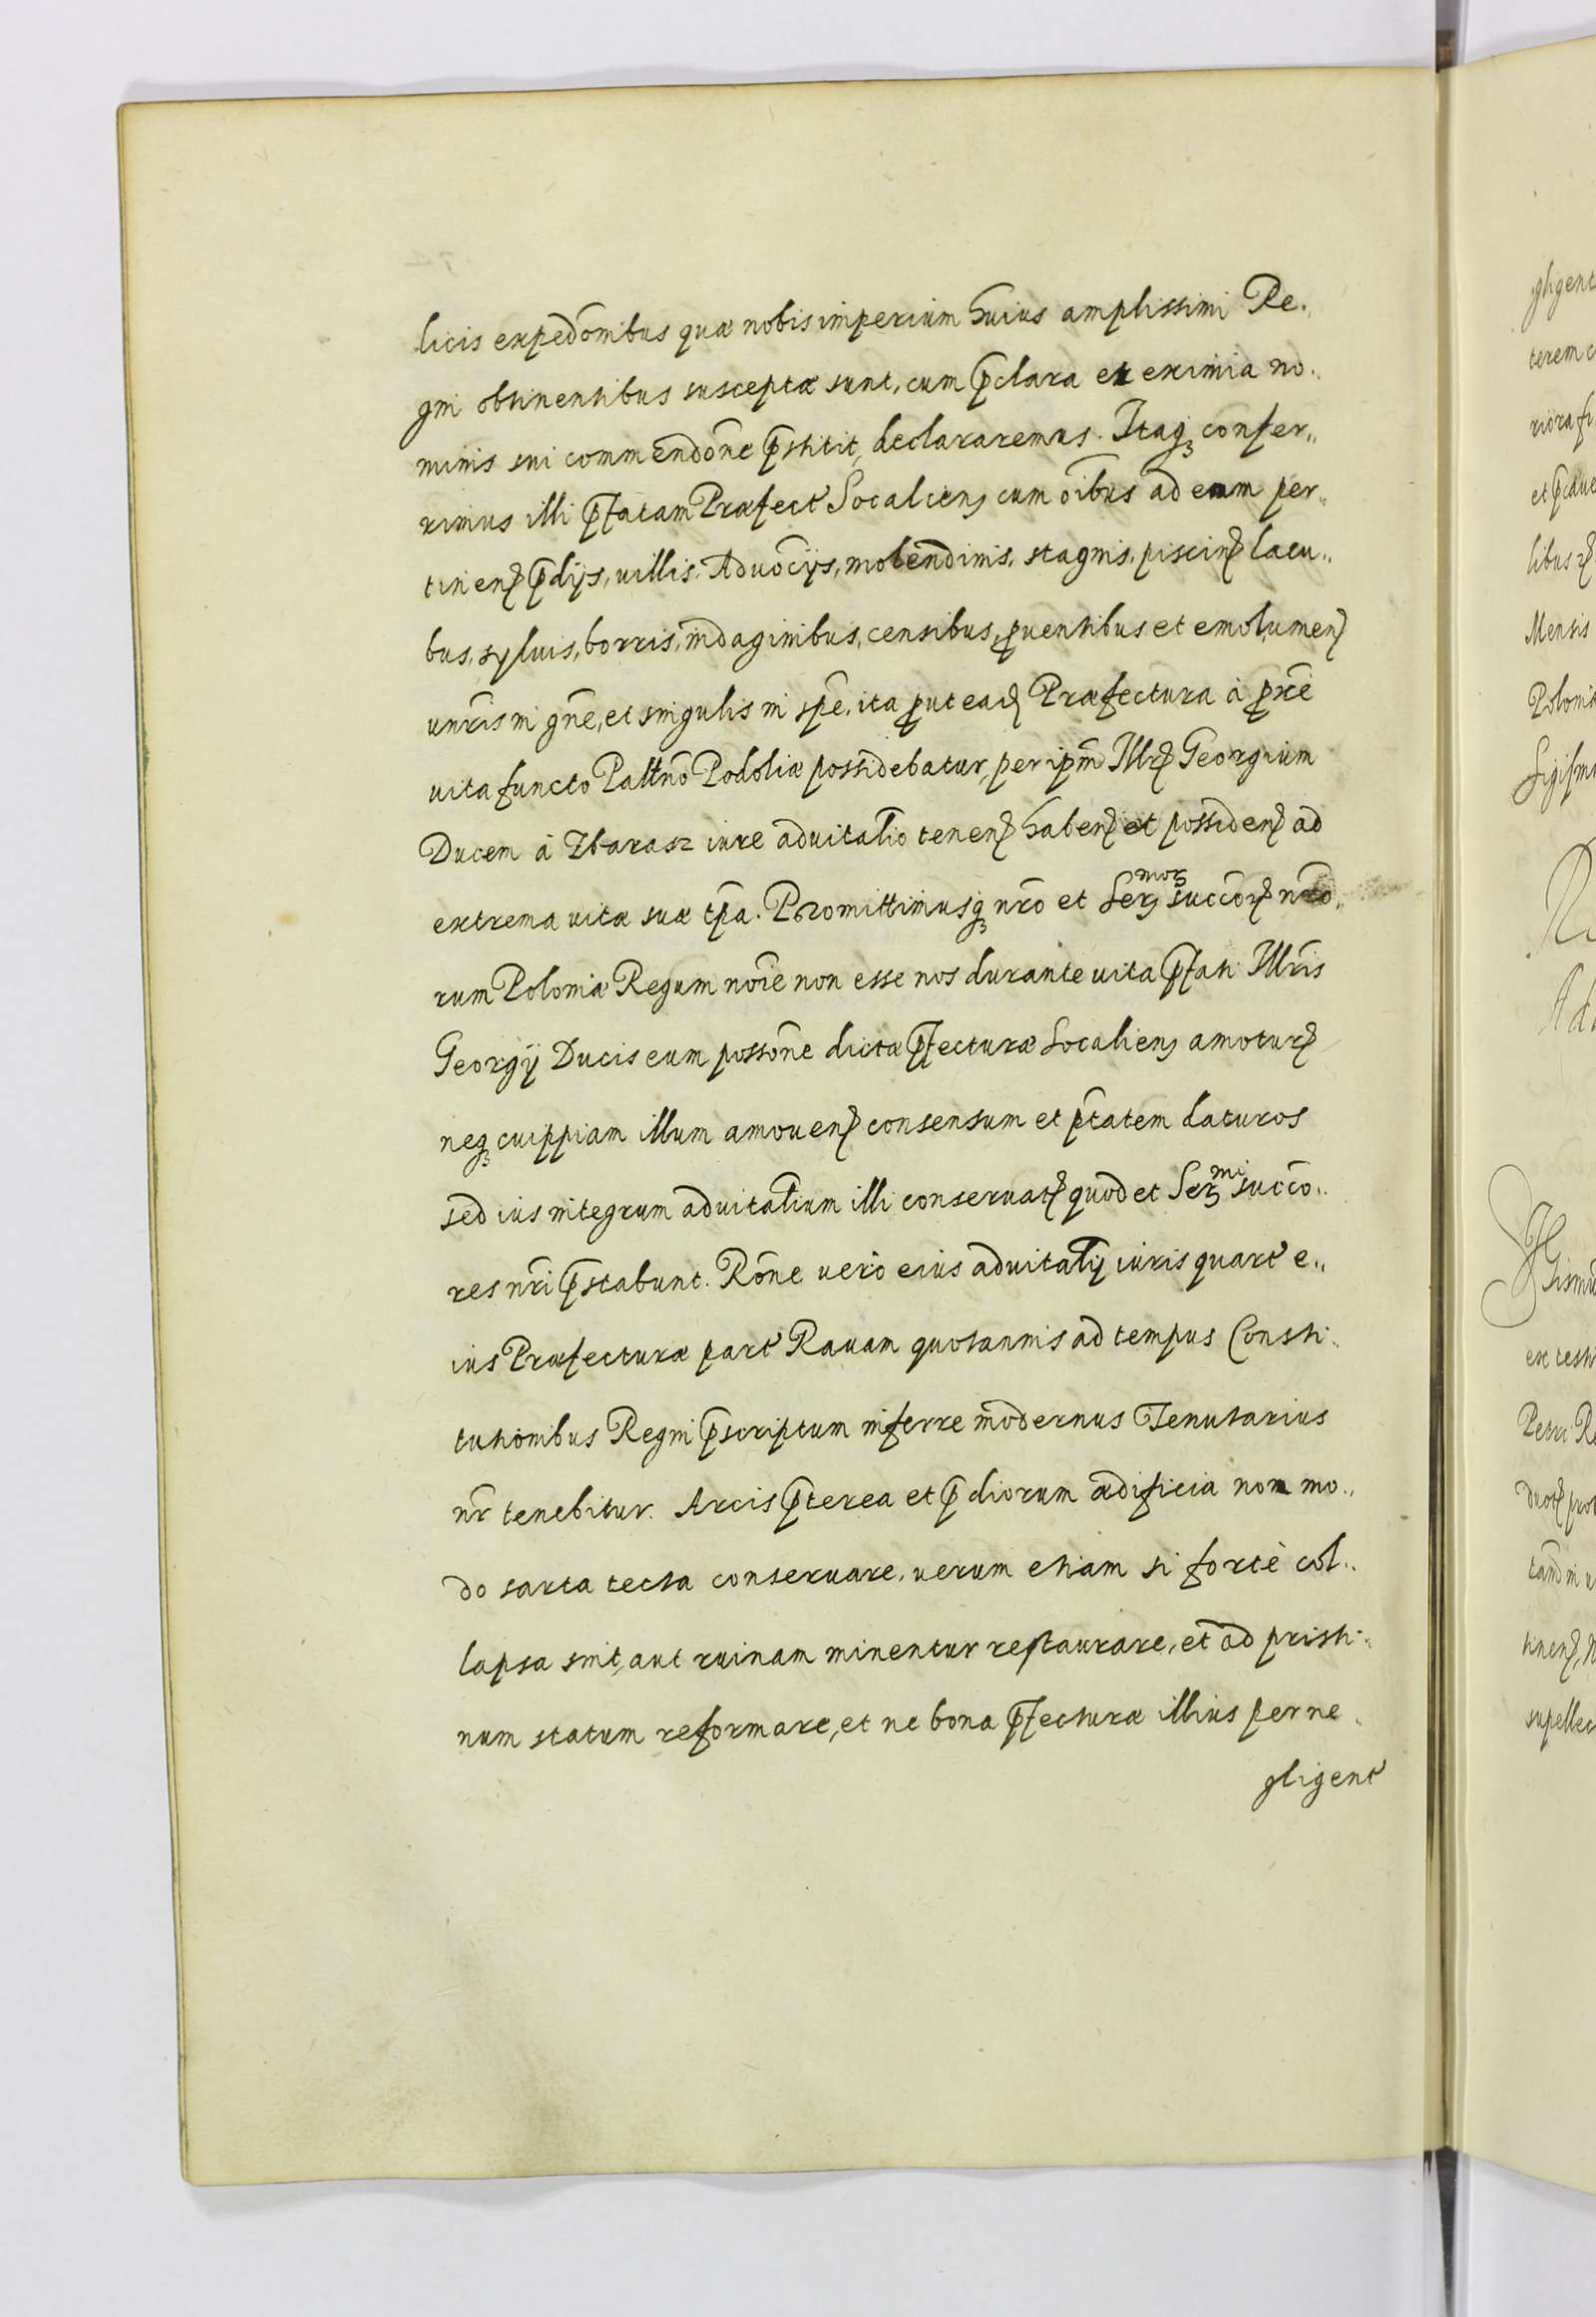 licis expedōnibus quæ nobis imperium huius amplissimi Re..
gni obtinentibus susceptæ sunt, cum p̄clara et eximia no..
minis sui commendōne p̄stitit, declararemus. Itaqꝫ confer..
rimus illi p̄fatam Præfect' Socalien̄ cum oībus ad eam per..
tinen̄ p̄dijs, villis. Aduōcijs, molendinis, stagnis, piscin̄ lacu..
bus, syluis, borris, indaginibus, censibus, ꝓuentibus et emolumen̄
unīris in gn̄e, et singulis in spē, ita ꝓut ead̄ Præfectura à ꝓxīe
vita functo Paltn̄o Podoliæ possidebatur, per ipm̄ Illr̄ Georgium
Ducem à Zbarasz iure aduitalīo tenen̄ haben̄ et possiden̄ ad
extrema vitæ suæ tp̄a. Promittimusqꝫ nr̄o et Serꝫ morꝫ succōr̄ nr̄o..
rum Poloniæ Regum noīe non esse nos durante vita p̄fati Illr̄is
Georgij Ducis eum possōne dictæ p̄fecturæ Socalien̄ amotur̄
neqꝫ cuippiam illum amouen̄ consensum et p̄tatem daturos
sed ius integrum aduitalīum illi conseruat̄ quod et Serꝫ mi succo..
res nr̄i p̄stabunt. Rōne verò eius aduitalīj iuris quart' e..
ius Præfecturæ part' Rauam quotannis ad tempus Consti..
tutionibus Regni p̄scriptum inferre modernus Tenutarius
nr̄ tenebitur. Arcis p̄terea et p̄diorum ædificia non mo..
do sarta tecta conseruare, verum etiam si fortè col..
lapsa sint, aut ruinam minentur restaurare, et ad pristi..
num statum reformare, et ne bona p̄fecturæ illius per ne..
gligent'